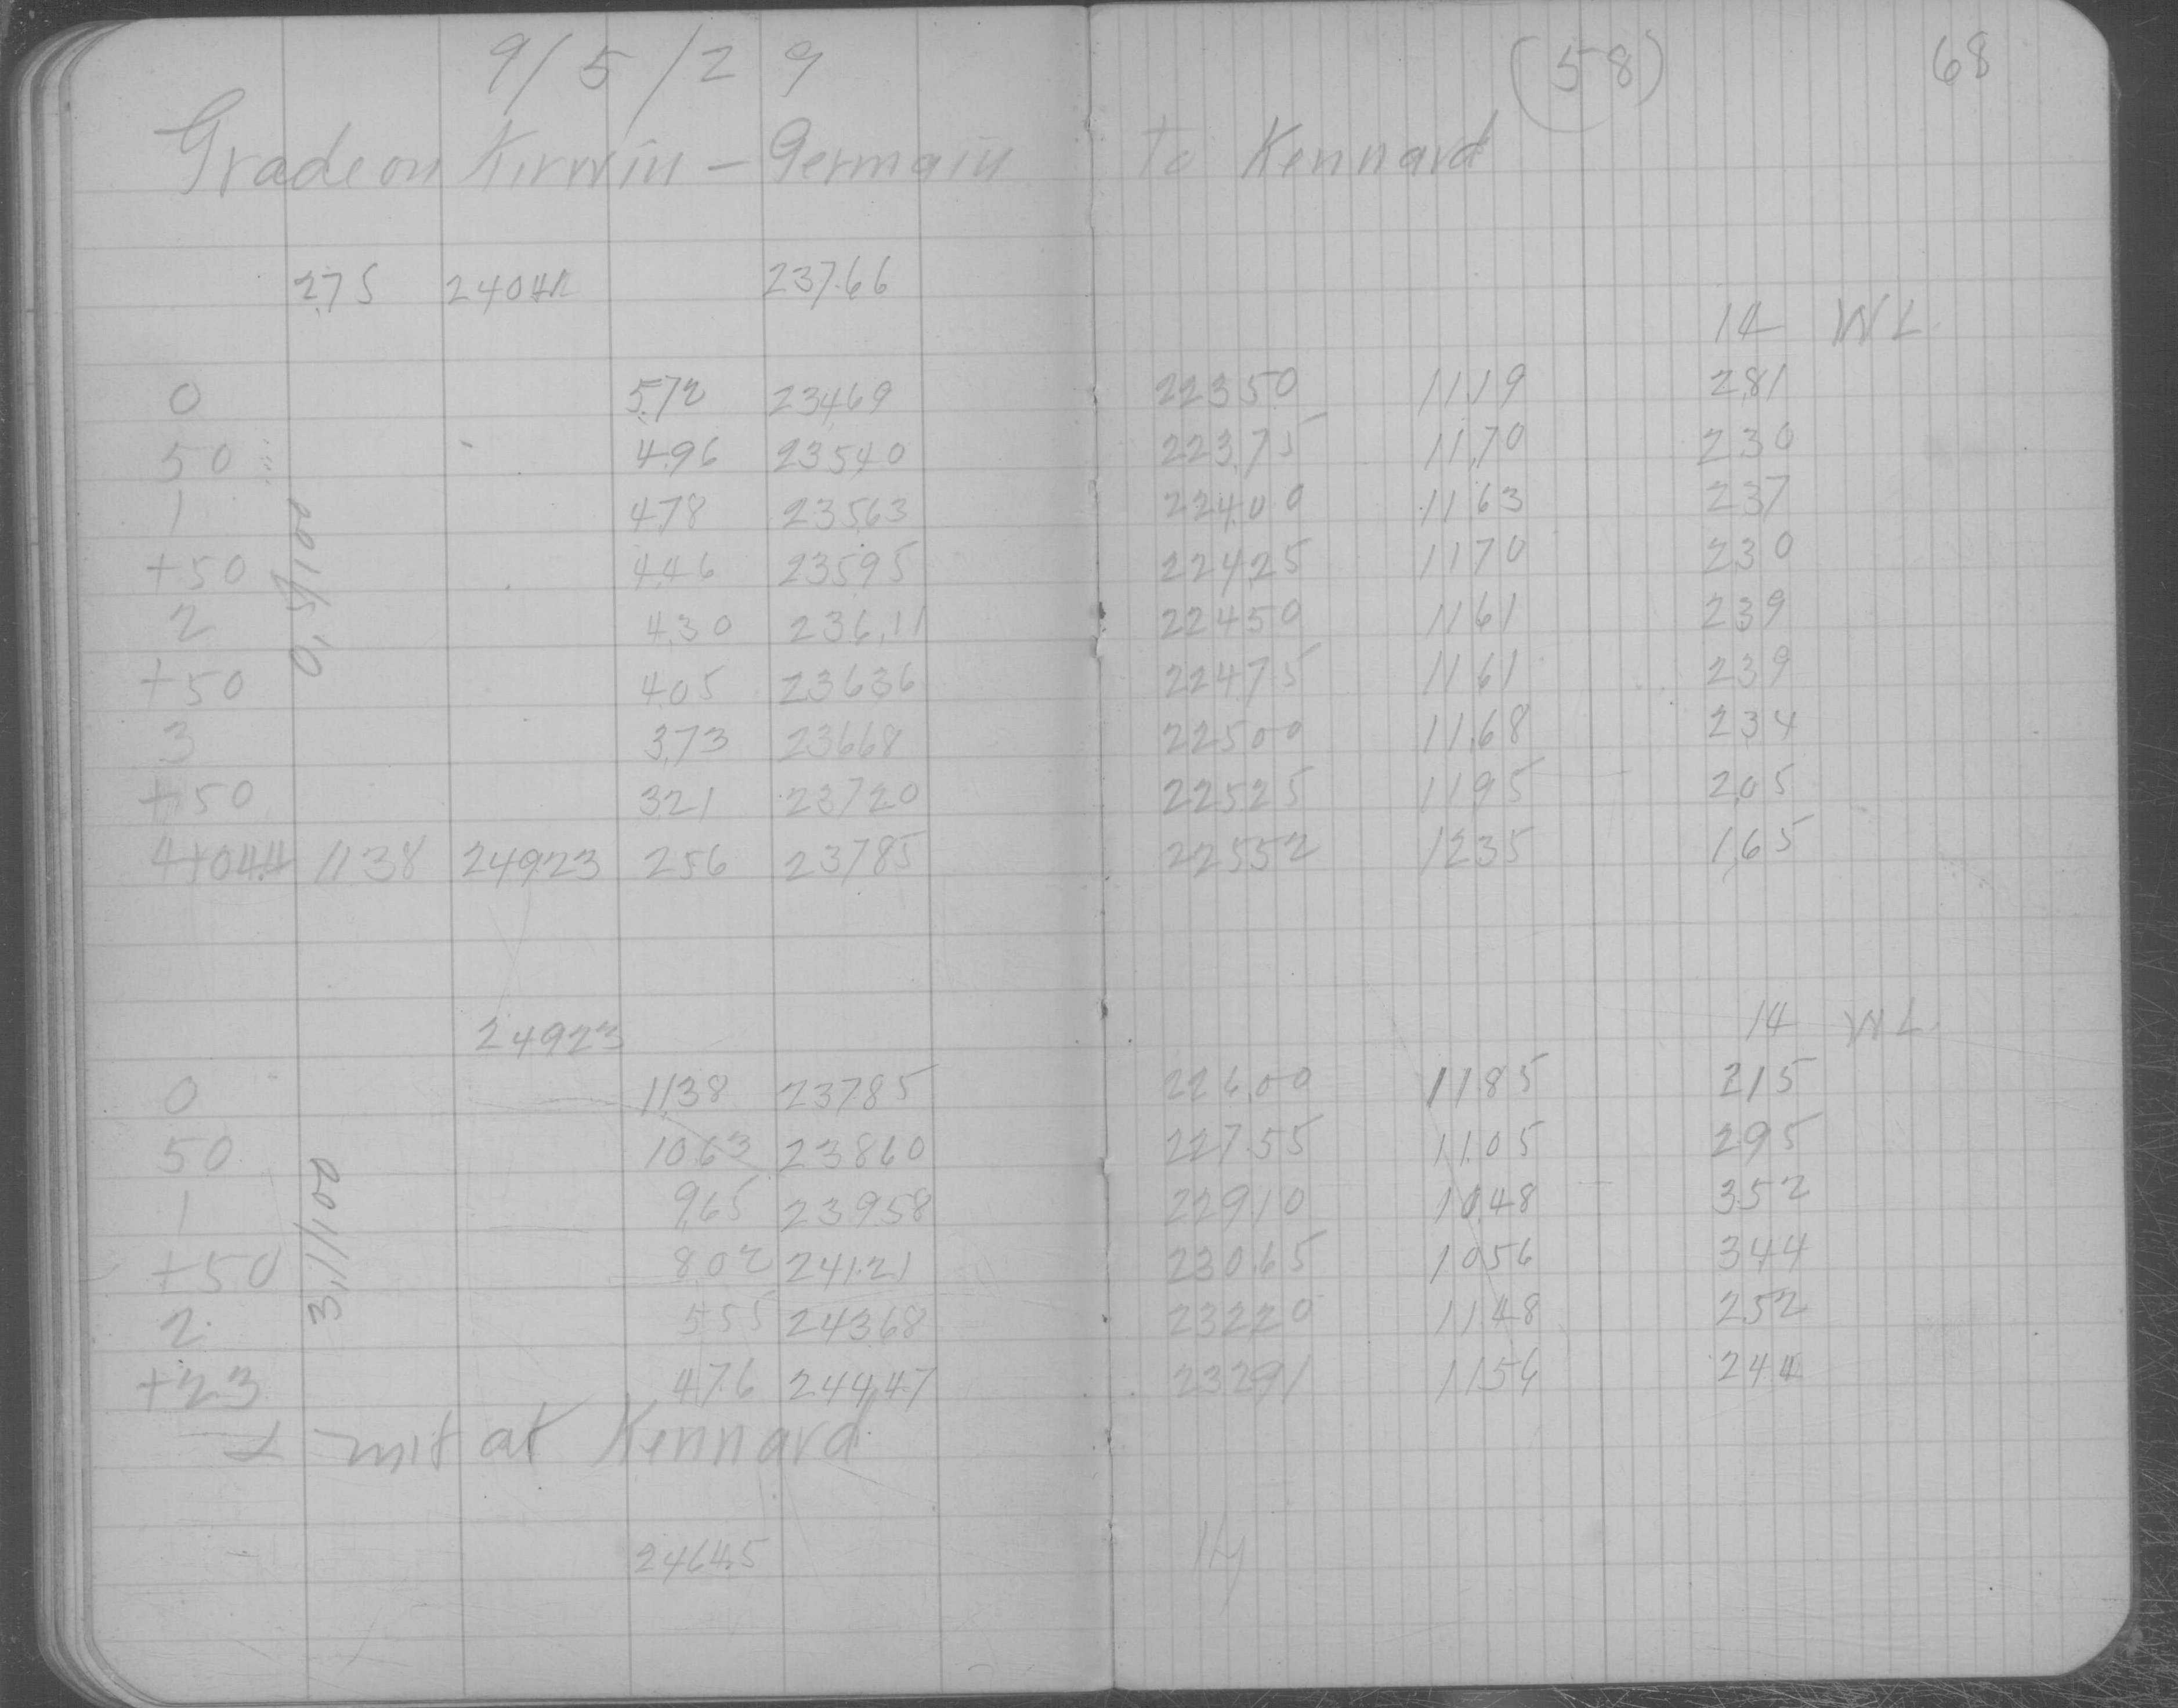 9/5/29 (58) 68
Grade on Kirwin - Germain to Kennard
2.75 24041 237.66
14 WL
0 5.72 23469 22350 1119 281
50 4.96 23540 223.75 11.70 230
1 478 23563 22400 1163 237
+50 446 23595 22425 1170 230
2 430 236.11 22450 1161 239
+50 405 23636 22475 1161 239
3 373 23668 22500 11.68 234
+50 321 23720 22525 1195 205
4+044 1138 24923 256 23785 22552 1235 1.65
0.5/100
24923 14 WL
0 1138 23785 226.00 1185 215
50 1063 23860 227.55 1105 295
1 9.65 23958 22910 1048 352
+50 802 241.21 230.65 1056 344
2 555 24368 23220 1148 252
+23 476 24447 23291 1156 244
3.1/100
mit at Kennard
24645